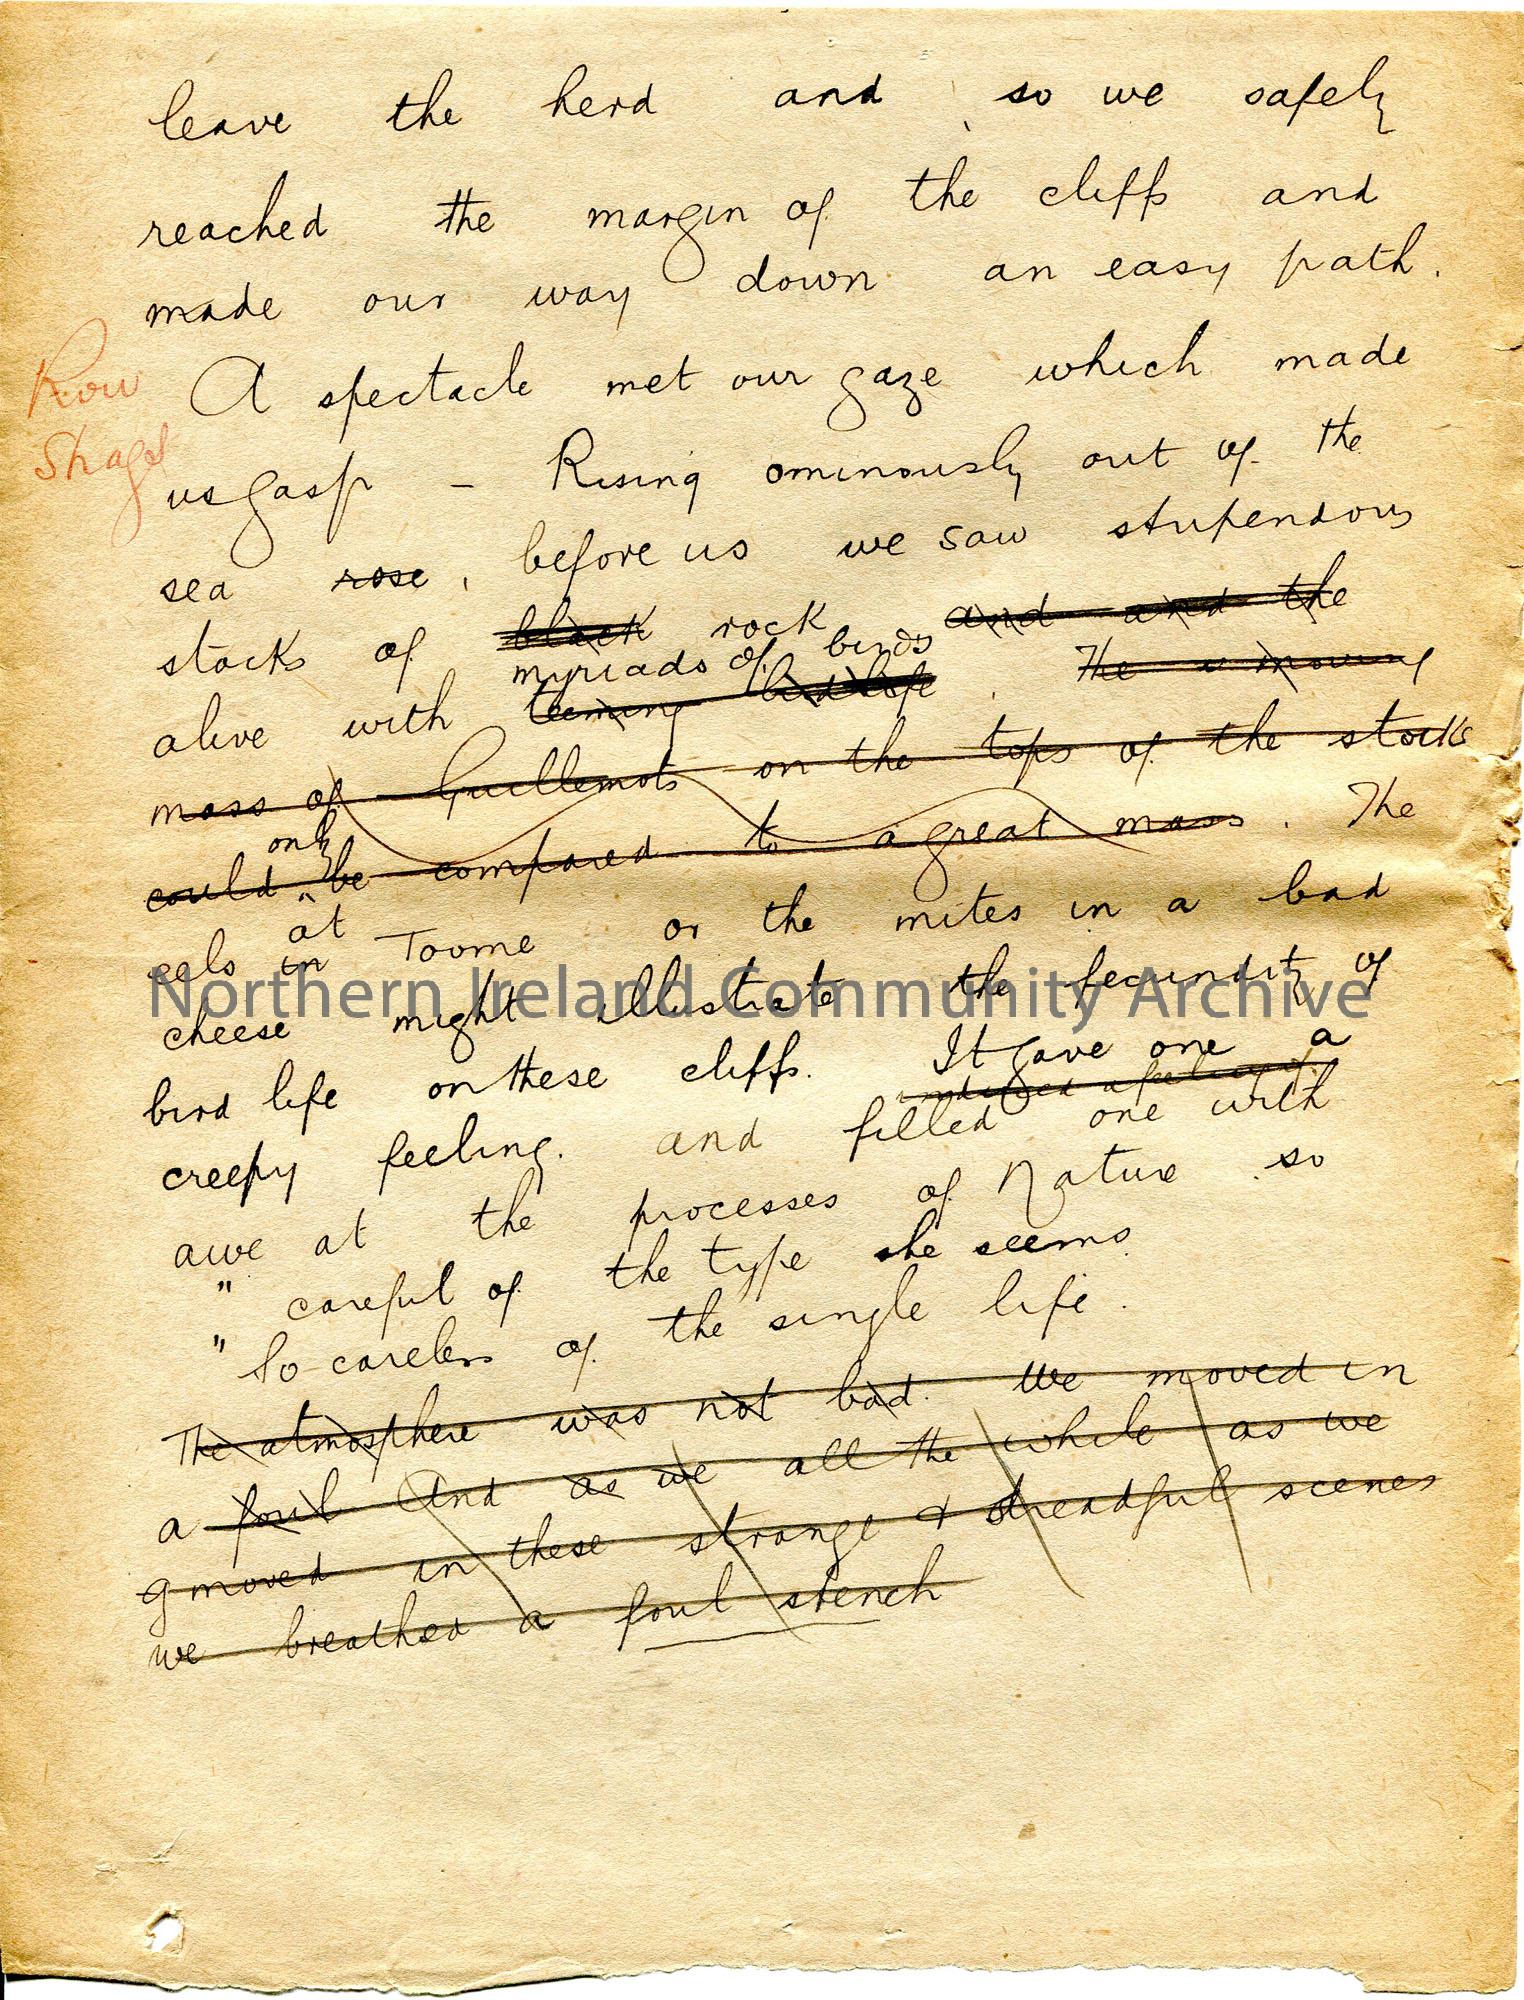 leave the herd and so we safely
reached the margin of the cliffs and
made our way down an easy path.
Row
Shags
A spectacle met our gaze which made
us gasp – Rising ominously out of the
sea rose, before us we saw stupendous
stacks of black rock and and the
myriads of birds
alive with teeming bird life. The moving
mass of Guillemots on the tops of the stacks
only
could be compared to a great mass. The
at
eels in Toome or the mites in a bad
cheese might illustrate the fecundity of
Northern Ireland Community Archive
bird life on these cliffs. It gave one a
creepy feeling. and filled one with
awe at the processes of Nature so
" careful of the type she seems
" So careless of the single life.
The atmosphere was not bad. We moved in
a foul And as we all the while as we
moved in these strange & dreadful scenes
we breathed a foul stench